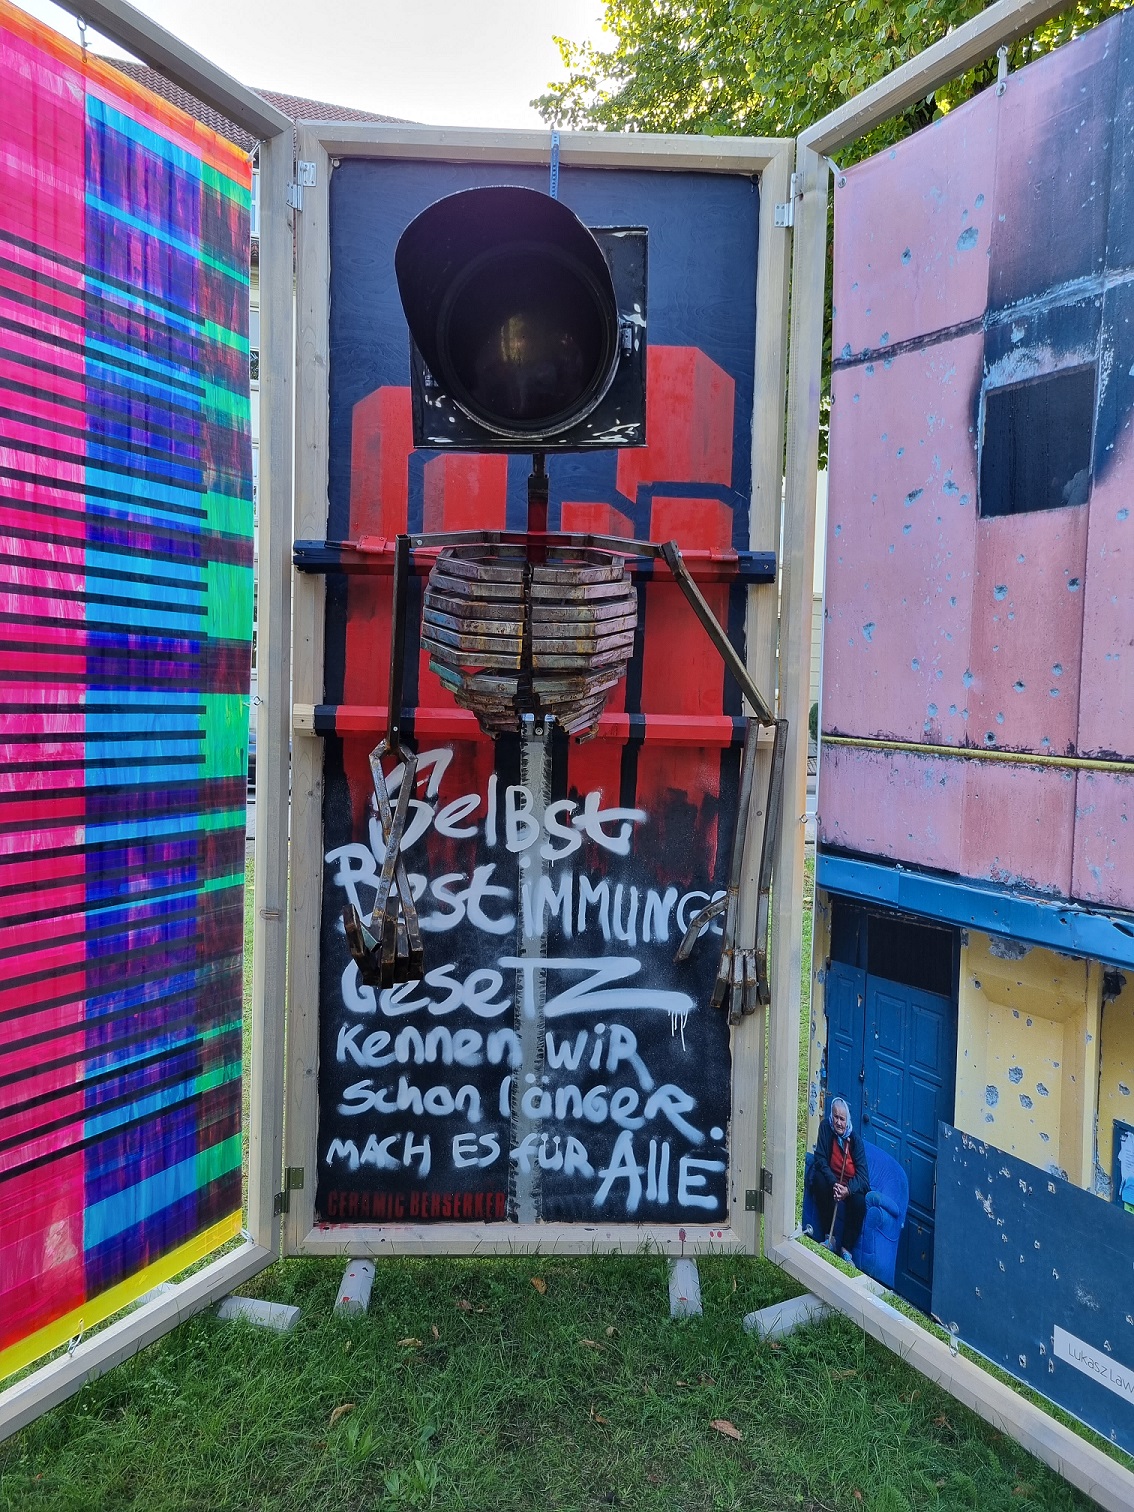 SelBst
BestiMMUNGS
GeseTZ
Kennen WiR
Schon länGeR.
MACH ES FÜR AllE
CERAMIC BERSERKER
Lukasz Law